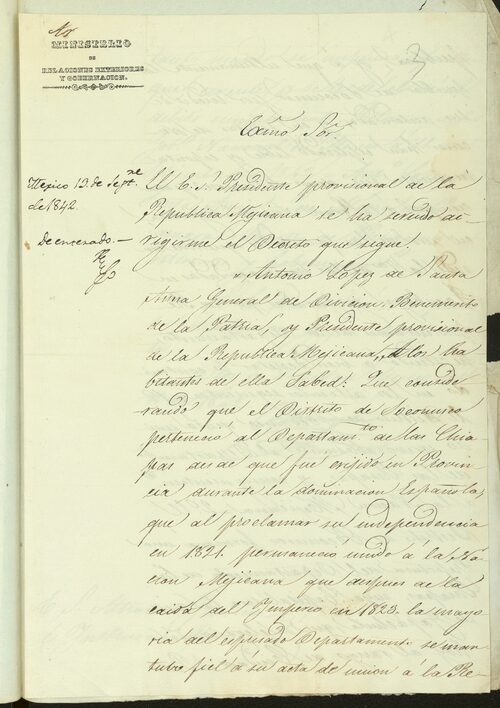 MINISTERIO
DE
RELACIONES EXTERIORES
Y GOBERNACION.
3
Exmo Sor.
Mexico 13 de Septre
de 1842.
De enterado. —
El E. S. Presidente provisional de la
Republica Mejicana se ha servido di-
rigirme el Decreto que sigue.
"Antonio Lopez de Santa
Anna General de Divicion, Benemerito
de la Patria, y Presidente provisional
de la Republica Mejicana, A los ha
bitantes de ella Sabed: Que conside
rando que el Distrito de Soconusco
perteneció al Departamto de las Chia-
pas desde que fué erijido en Provin-
cia durante la dominacion Española;
que al proclamar su independencia
en 1821. permaneció unido á la Na-
cion Mejicana que despues de la
caida del Imperio en 1823. la mayo
ria del espresado Departamento se man-
tubo fiel á su acta de union á la Re-